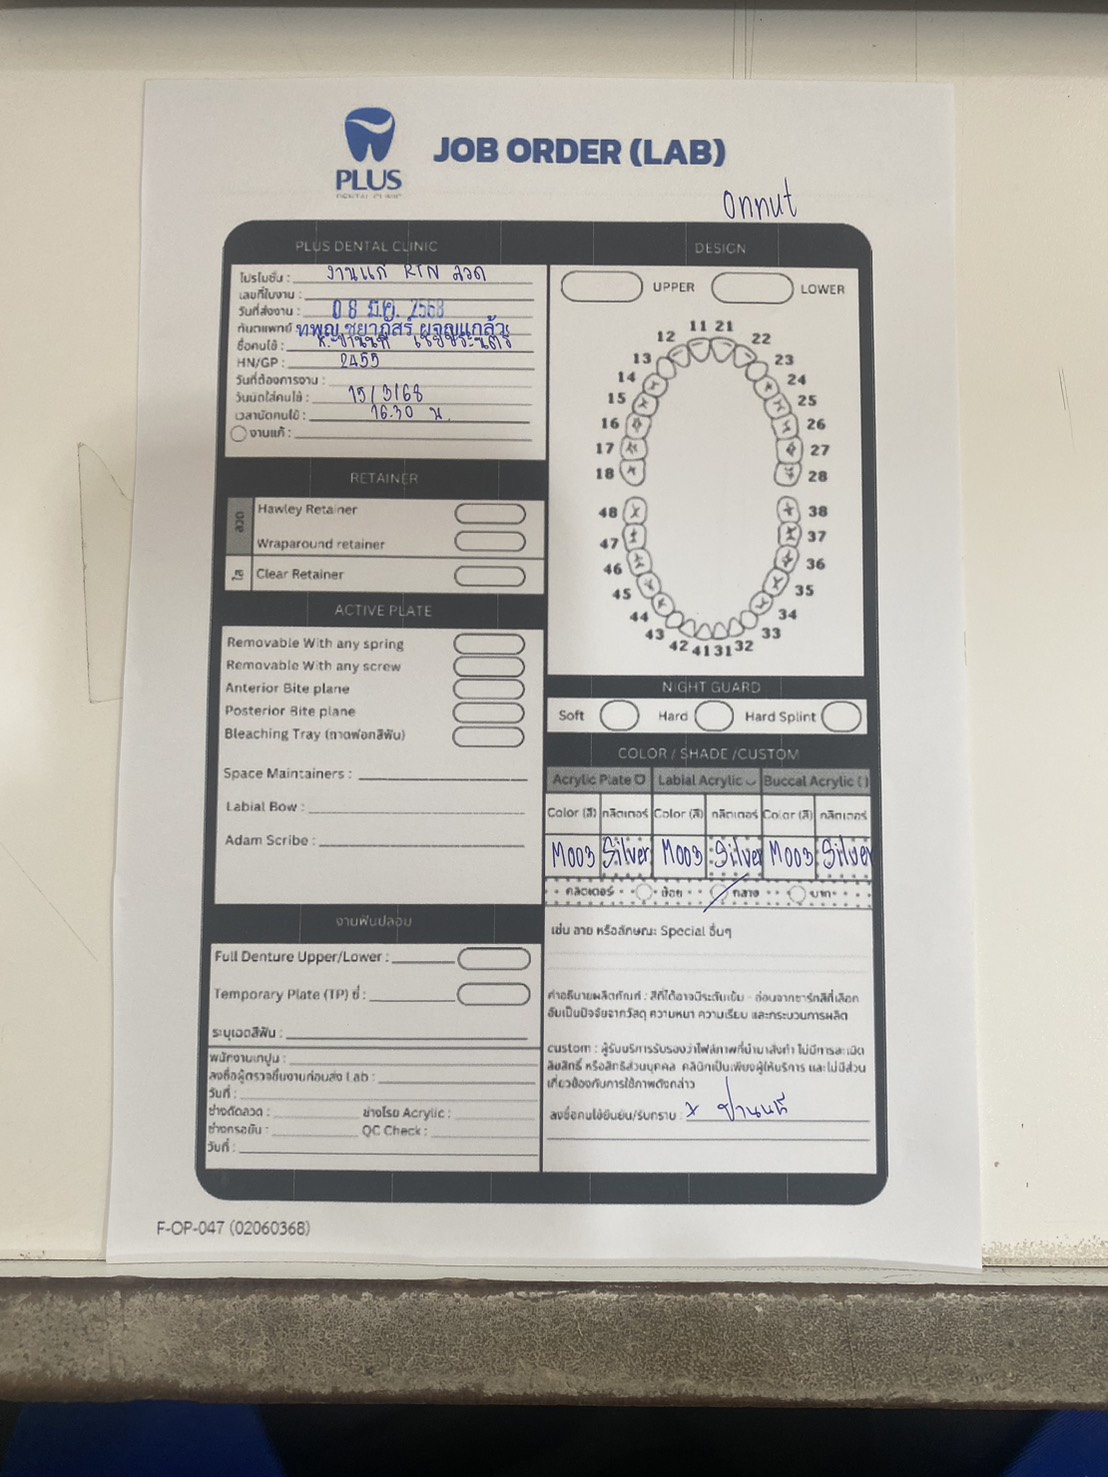 PLUS
DENTAL CLINIC
JOB ORDER (LAB)
onnut
PLUS DENTAL CLINIC
โปรโมชั่น : งานแก้ RTN ลวด
เลขที่ใบงาน :
วันที่ส่งงาน : 08 มี.ค. 2568
ทันตแพทย์ ทพญ.ชยาภัสร์ ผจญแกล้ว
ชื่อคนไข้ :
HN/GP : 2455
วันที่ต้องการงาน :
วันนัดใส่คนไข้ : 15/3/68
เวลานัดคนไข้ : 16.30 น.
งานแก้ :
RETAINER
ลวด
Hawley Retainer
Wraparound retainer
ใส
Clear Retainer
ACTIVE PLATE
Removable With any spring
Removable With any screw
Anterior Bite plane
Posterior Bite plane
Bleaching Tray (ถาดฟอกสีฟัน)
Space Maintainers :
Labial Bow :
Adam Scribe :
งานฟันปลอม
Full Denture Upper/Lower :
Temporary Plate (TP) ซี่ :
ระบุเฉดสีฟัน :
พนักงานเทปูน :
ลงชื่อผู้ตรวจชิ้นงานก่อนส่ง Lab :
วันที่ :
ช่างดัดลวด : ช่างโรย Acrylic :
ช่างกรอขัด : QC Check :
วันที่ :
DESIGN
UPPER LOWER
11 21
12 22
13 23
14 24
15 25
16 26
17 27
18 28
48 38
47 37
46 36
45 35
44 34
43 33
42 41 31 32
NIGHT GUARD
Soft Hard Hard Splint
COLOR / SHADE /CUSTOM
Acrylic Plate Labial Acrylic Buccal Acrylic ( )
Color (สี) กลิตเตอร์ Color (สี) กลิตเตอร์ Color (สี) กลิตเตอร์
M003 Silver M003 Silver M003 Silver
กลิตเตอร์ น้อย กลาง มาก
เช่น ลาย หรือลักษณะ Special อื่นๆ
คำอธิบายผลิตภัณฑ์ : สีที่ได้อาจมีระดับเข้ม - อ่อนจากชาร์ทสีที่เลือก
อันเป็นปัจจัยจากวัสดุ ความหนา ความเรียบ และกระบวนการผลิต
custom : ผู้รับบริการรับรองว่าไฟล์ภาพที่นำมาสั่งทำ ไม่มีการละเมิด
ลิขสิทธิ์ หรือสิทธิส่วนบุคคล คลินิกเป็นเพียงผู้ให้บริการ และไม่มีส่วน
เกี่ยวข้องกับการใช้ภาพดังกล่าว
ลงชื่อคนไข้ยืนยัน/รับทราบ : x
F-OP-047 (02060368)